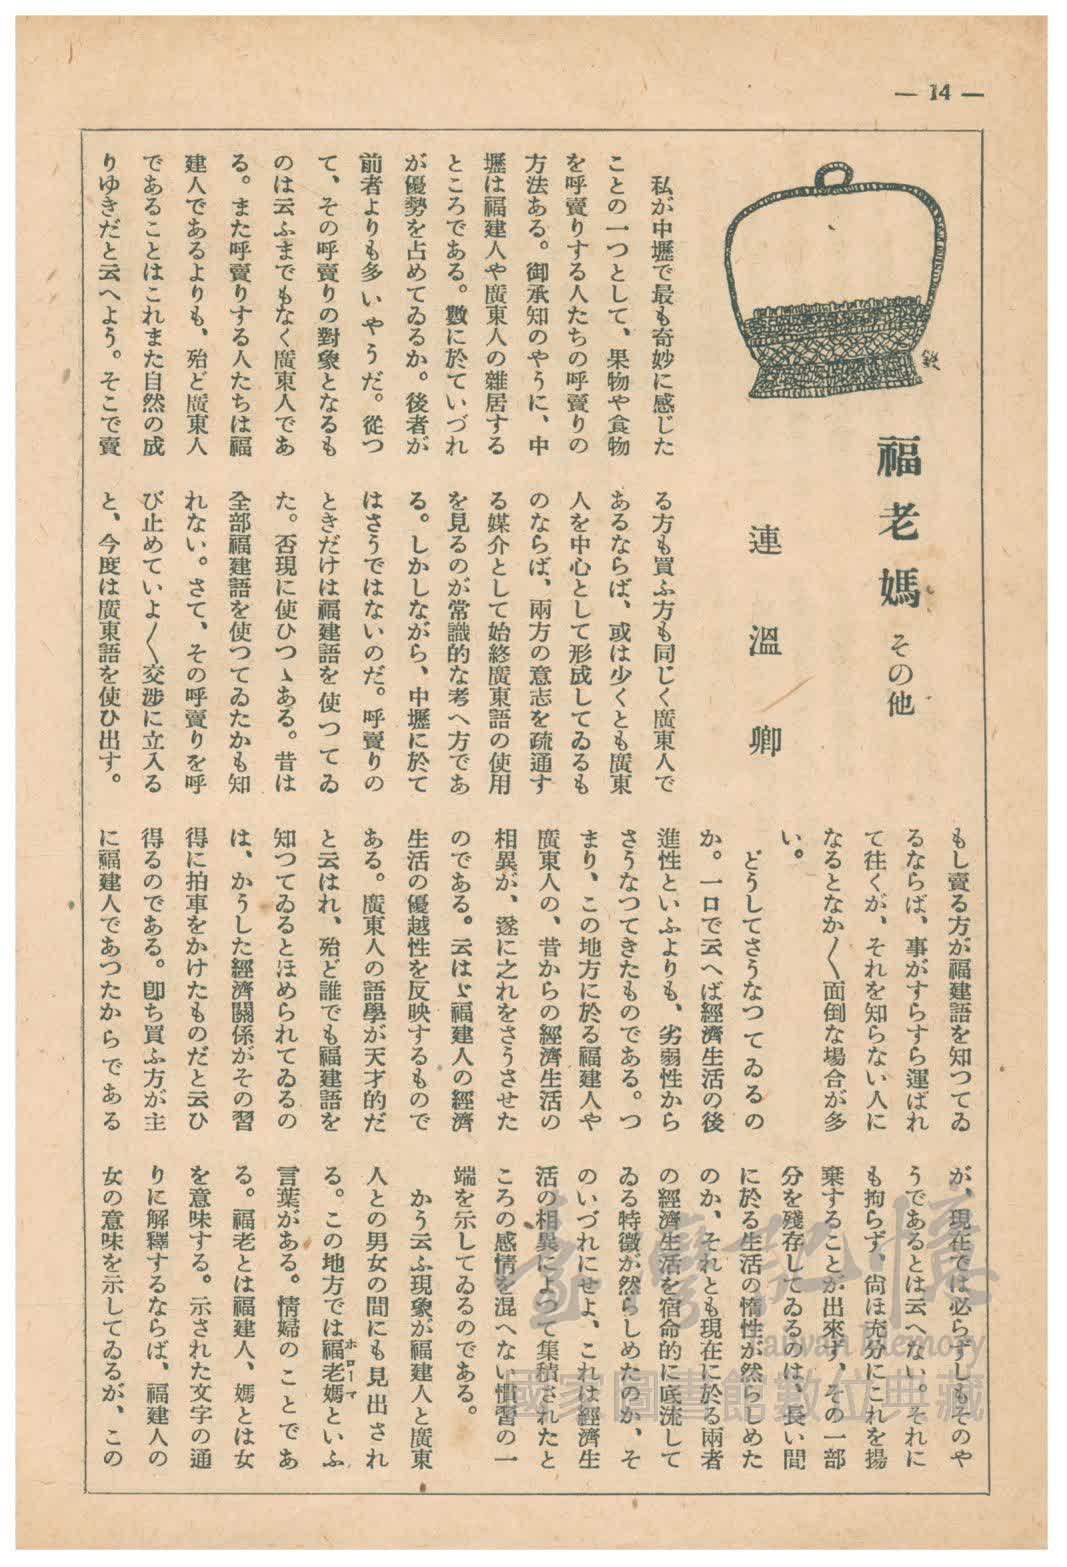 — 14 —
福老媽 その他
連溫卿
私が中壢で最も奇妙に感じた
ことの一つとして、果物や食物
を呼賣りする人たちの呼賣りの
方法ある。御承知のやうに、中
壢は福建人や廣東人の雜居する
ところである。數に於ていづれ
が優勢を占めてゐるか。後者が
前者よりも多いやうだ。從つ
て、その呼賣りの對象となるも
のは云ふまでもなく廣東人であ
る。また呼賣りする人たちは福
建人であるよりも、殆ど廣東人
であることはこれまた自然の成
りゆきだと云へよう。そこで賣
る方も買ふ方も同じく廣東人で
あるならば、或は少くとも廣東
人を中心として形成してゐるも
のならば、兩方の意志を疏通す
る媒介として始終廣東語の使用
を見るのが常識的な考へ方であ
る。しかしながら、中壢に於て
はさうではないのだ。呼賣りの
ときだけは福建語を使つてゐ
た。否現に使ひつゝある。昔は
全部福建語を使つてゐたかも知
れない。さて、その呼賣りを呼
び止めていよ〳〵交渉に立入る
と、今度は廣東語を使ひ出す。
もし賣る方が福建語を知つてゐ
るならば、事がすらすら運ばれ
て往くが、それを知らない人に
なるとなか〳〵面倒な場合が多
い。
どうしてさうなつてゐるの
か。一口で云へば經濟生活の後
進性といふよりも、劣弱性から
さうなつてきたものである。つ
まり、この地方に於る福建人や
廣東人の、昔からの經濟生活の
相異が、遂に之れをさうさせた
のである。云はゞ福建人の經濟
生活の優越性を反映するもので
ある。廣東人の語學が天才的だ
と云はれ、殆ど誰でも福建語を
知つてゐるとほめられてゐるの
は、かうした經濟關係がその習
得に拍車をかけたものだと云ひ
得るのである。卽ち買ふ方が主
に福建人であつたからである
が、現在では必らずしもそのや
うであるとは云へない。それに
も拘らず、尙ほ充分にこれを揚
棄することが出來ず、その一部
分を殘存してゐるのは、長い間
に於る生活の惰性が然らしめた
のか、それとも現在に於る兩者
の經濟生活を宿命的に底流して
ゐる特徵が然らしめたのか、そ
のいづれにせよ、これは經濟生
活の相異によつて集積されたと
ころの感情を混へない慣習の一
端を示してゐるのである。
かう云ふ現象が福建人と廣東
人との男女の間にも見出され
る。この地方では福老媽といふ
ホローマ
言葉がある。情婦のことであ
る。福老とは福建人、媽とは女
を意味する。示された文字の通
りに解釋するならば、福建人の
女の意味を示してゐるが、この
臺灣記憶
Taiwan Memory
國家圖書館數位典藏